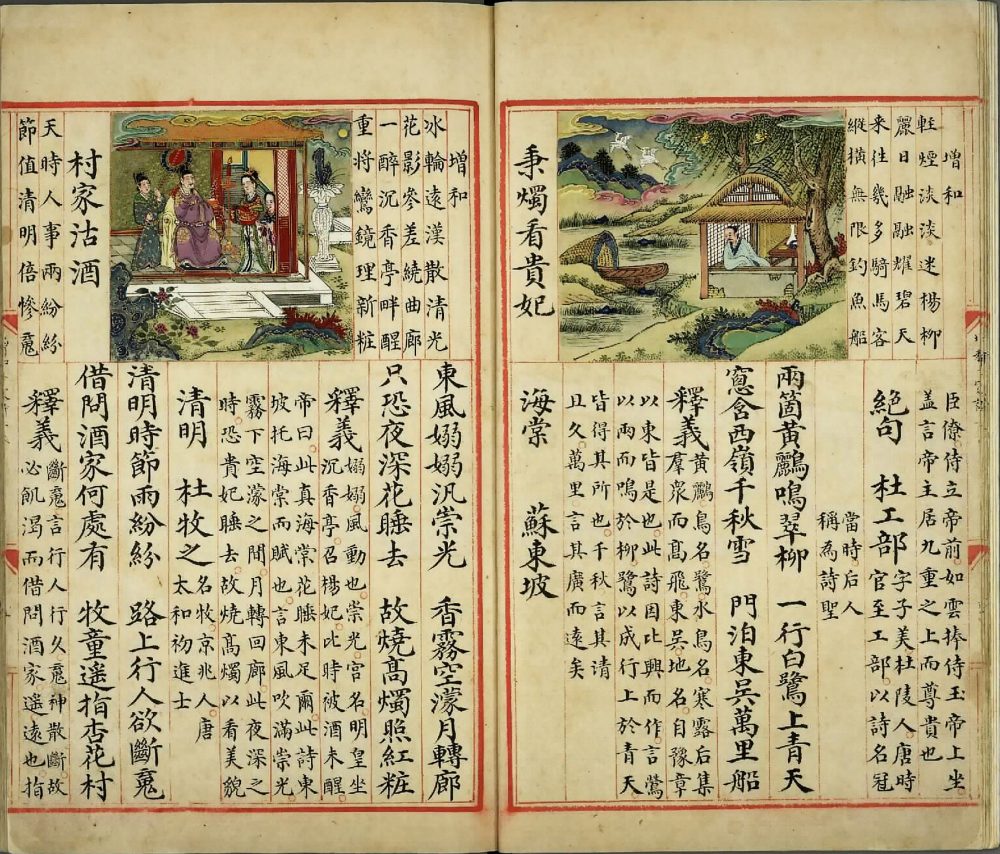 增和
軽煙淡淡迷楊柳
麗日融融耀碧天
来徃幾多騎馬客
縱橫無限釣魚船
秉燭看貴妃
臣僚侍立帝前如雲捧侍玉帝上坐
盖言帝主居九重之上而尊貴也
絶句　杜工部　字子美杜陵人唐時
官至工部以詩名冠
當時后人
稱為詩聖
兩箇黃鸝鳴翠柳　一行白鷺上青天
窓含西嶺千秋雪　門泊東吳萬里船
釋義　黃鸝鳥名鷺水鳥名寒露后集
羣衆而髙飛東吳地名自豫章
以東皆是也此詩因比興而作言鶯
以兩而鳴於柳鷺以成行上於青天
皆得其所也千秋言其清
且久萬里言其廣而遠矣
海棠　蘇東坡
增和
冰輪遠漢散清光
花影參差繞曲廊
一醉沉香亭畔醒
重將鸞鏡理新粧
村家沽酒
天時人事兩紛紛
節值清明倍慘䰟
東風嫋嫋汎崇光　香霧空濛月轉廊
只恐夜深花睡去　故燒髙燭照紅粧
釋義　嫋嫋風動也崇光宮名明皇坐
沉香亭召楊妃比時被酒未醒
帝曰此真海棠花睡未足爾此詩東
坡托海棠而賦也言東風吹滿崇光
霧下空濛之間月轉回廊此夜深之
時恐貴妃睡去故燒髙燭以看美貌
清明　杜牧之　名牧京兆人唐
太和初進士
清明時節雨紛紛　路上行人欲斷䰟
借問酒家何處有　牧童遥指杏花村
釋義　斷䰟言行人行久䰟神散斷故
必飢渴而借問酒家遥遠也指